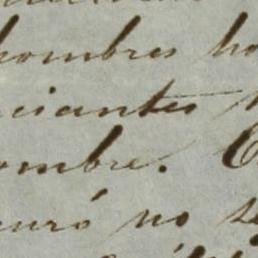 hombres ho
ciantes
ombre.
uró no se